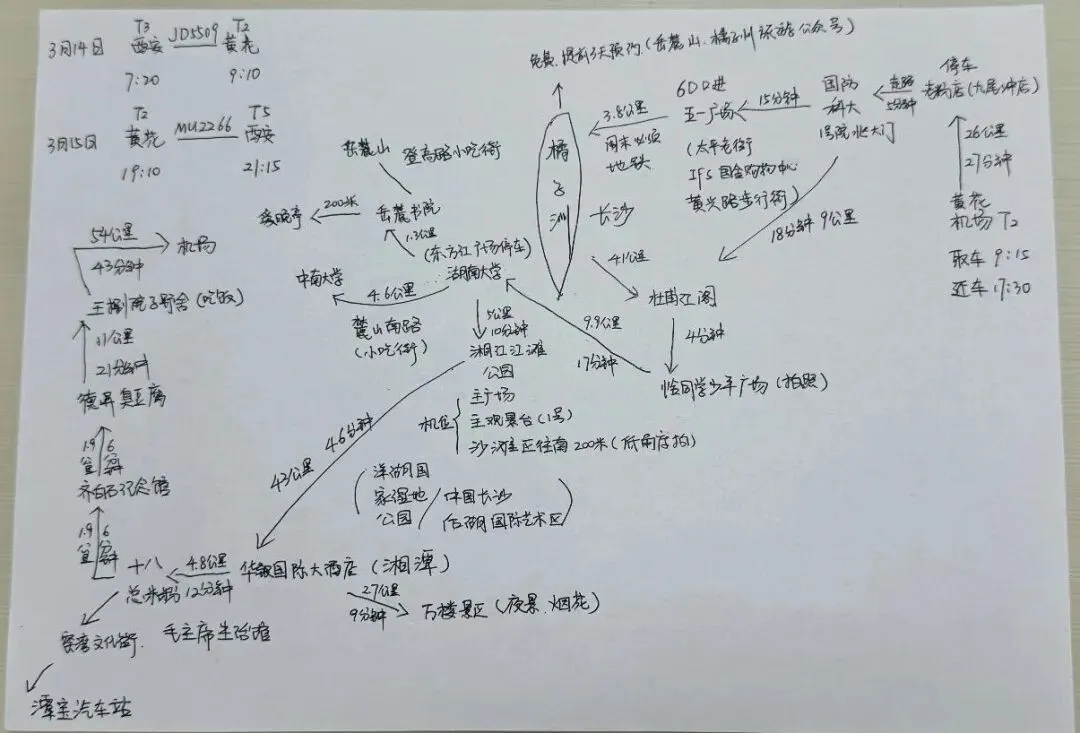 3月14日 T3 西安 JD5509 T2 黄花
7:20 9:10
3月15日 T2 黄花 MU2266 T5 西安
19:10 21:15
免费.提前3天预约(岳麓山.橘子洲旅游公众号)
停车
老杨店(九尾冲店)
走路
5分钟
国防
科大
1号院北大门
15分钟
6口进
五一广场
(太平老街
IFS国金购物中心
黄兴路步行街)
3.8公里
周末必须
地铁
橘子洲
长沙
26公里
27分钟
黄花
机场T2
取车 9:15
还车 17:30
18分钟 9公里
4.1公里
杜甫江阁
4分钟
恰同学少年广场(拍照)
9.9公里
17分钟
岳麓山
登高路小吃街
爱晚亭
200米
岳麓书院
1.3公里
(东方红广场停车)
湖南大学
中南大学
4.6公里
麓山南路
(小吃街)
5公里
10分钟
湘江江滩
公园
机位
主广场
主观景台(1号)
沙滩区往南200米(低角度拍)
洋湖国
家湿地
公园
中国长沙
后湖国际艺术区
46分钟
43公里
华银国际大酒店(湘潭)
27公里
9分钟
万楼景区(夜景.烟花)
4.8公里
12分钟
十八
总米粉
窑湾文化街.
潭宝汽车站
1.9公里
6分钟
齐白石纪念馆
1.9公里
6分钟
11公里
21分钟
王捌院子野舍(吃饭)
54公里
43分钟
机场